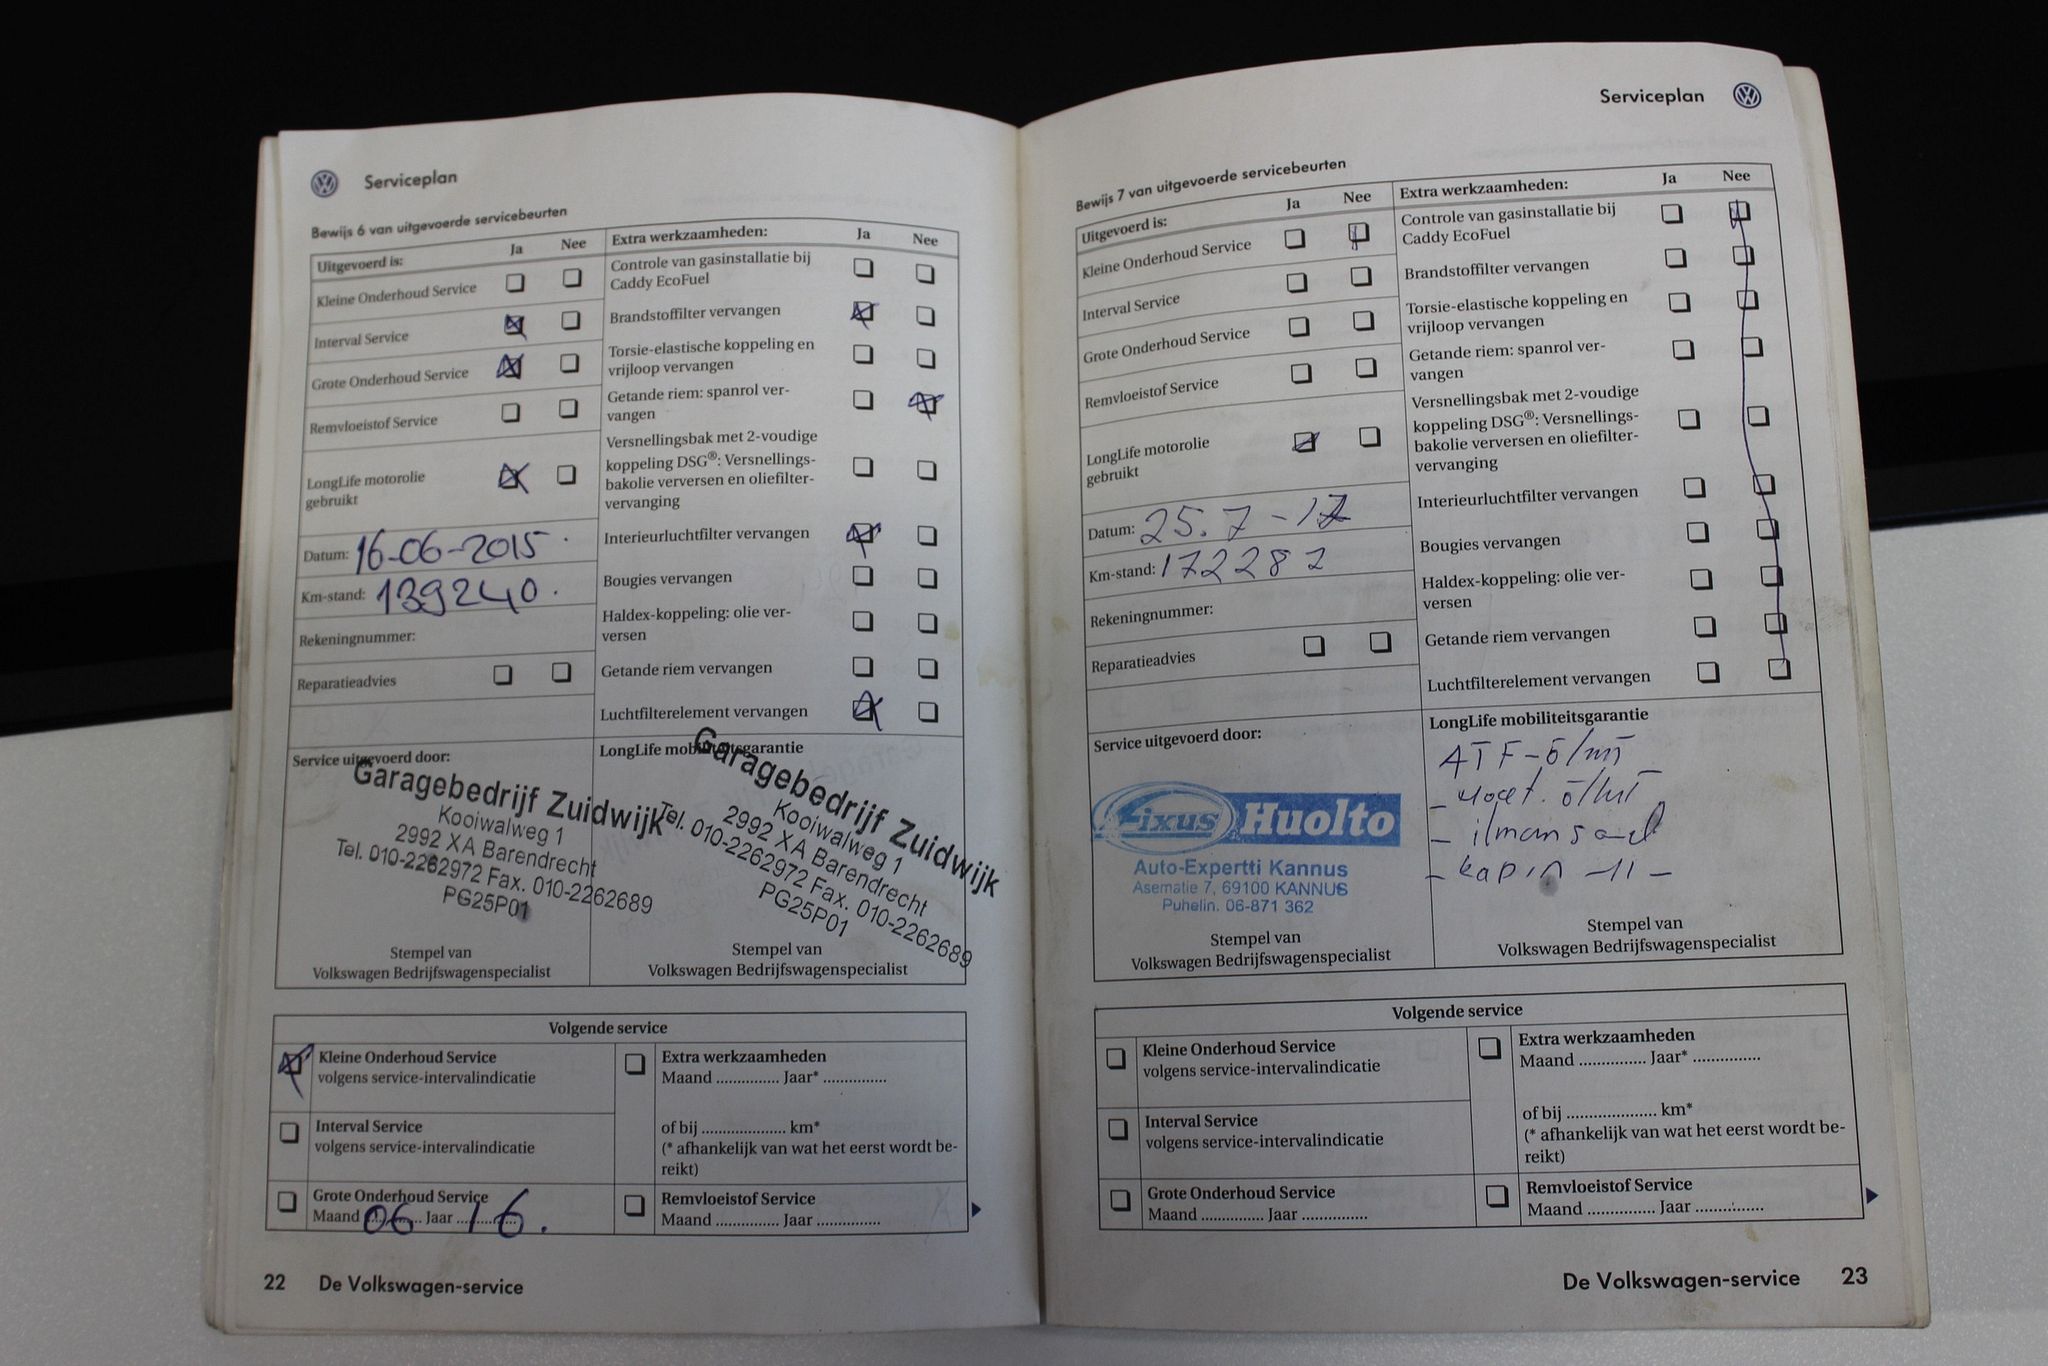 Serviceplan
Bewijs 6 van uitgevoerde servicebeurten
Uitgevoerd is: Ja Nee
Kleine Onderhoud Service
Interval Service
Grote Onderhoud Service
Remvloeistof Service
LongLife motorolie
gebruikt
Datum: 16-06-2015.
Km-stand: 139240.
Rekeningnummer:
Reparatieadvies
Extra werkzaamheden: Ja Nee
Controle van gasinstallatie bij
Caddy EcoFuel
Brandstoffilter vervangen
Torsie-elastische koppeling en
vrijloop vervangen
Getande riem: spanrol ver-
vangen
Versnellingsbak met 2-voudige
koppeling DSG®: Versnellings-
bakolie verversen en oliefilter-
vervanging
Interieurluchtfilter vervangen
Bougies vervangen
Haldex-koppeling: olie ver-
versen
Getande riem vervangen
Luchtfilterelement vervangen
Service uitgevoerd door:
Garagebedrijf Zuidwijk
Kooiwalweg 1
2992 XA Barendrecht
Tel. 010-2262972 Fax. 010-2262689
PG25P01
Stempel van
Volkswagen Bedrijfswagenspecialist
LongLife mobiliteitsgarantie
Garagebedrijf Zuidwijk
Kooiwalweg 1
2992 XA Barendrecht
Tel. 010-2262972 Fax. 010-2262689
PG25P01
Stempel van
Volkswagen Bedrijfswagenspecialist
Volgende service
Kleine Onderhoud Service
volgens service-intervalindicatie
Interval Service
volgens service-intervalindicatie
Grote Onderhoud Service
Maand 06 Jaar 16.
Extra werkzaamheden
Maand ............... Jaar* ...............
of bij .................... km*
(* afhankelijk van wat het eerst wordt be-
reikt)
Remvloeistof Service
Maand ............... Jaar ...............
22 De Volkswagen-service
Serviceplan
Bewijs 7 van uitgevoerde servicebeurten
Uitgevoerd is: Ja Nee
Kleine Onderhoud Service
Interval Service
Grote Onderhoud Service
Remvloeistof Service
LongLife motorolie
gebruikt
Datum: 25.7-17
Km-stand: 172282
Rekeningnummer:
Reparatieadvies
Extra werkzaamheden: Ja Nee
Controle van gasinstallatie bij
Caddy EcoFuel
Brandstoffilter vervangen
Torsie-elastische koppeling en
vrijloop vervangen
Getande riem: spanrol ver-
vangen
Versnellingsbak met 2-voudige
koppeling DSG®: Versnellings-
bakolie verversen en oliefilter-
vervanging
Interieurluchtfilter vervangen
Bougies vervangen
Haldex-koppeling: olie ver-
versen
Getande riem vervangen
Luchtfilterelement vervangen
Service uitgevoerd door:
Fixus Huolto
Auto-Expertti Kannus
Asematie 7, 69100 KANNUS
Puhelin. 06-871 362
Stempel van
Volkswagen Bedrijfswagenspecialist
LongLife mobiliteitsgarantie
ATF-ö/
-
- ilmans
- -11-
Stempel van
Volkswagen Bedrijfswagenspecialist
Volgende service
Kleine Onderhoud Service
volgens service-intervalindicatie
Interval Service
volgens service-intervalindicatie
Grote Onderhoud Service
Maand ............... Jaar ...............
Extra werkzaamheden
Maand ............... Jaar* ...............
of bij .................... km*
(* afhankelijk van wat het eerst wordt be-
reikt)
Remvloeistof Service
Maand ............... Jaar ...............
De Volkswagen-service 23